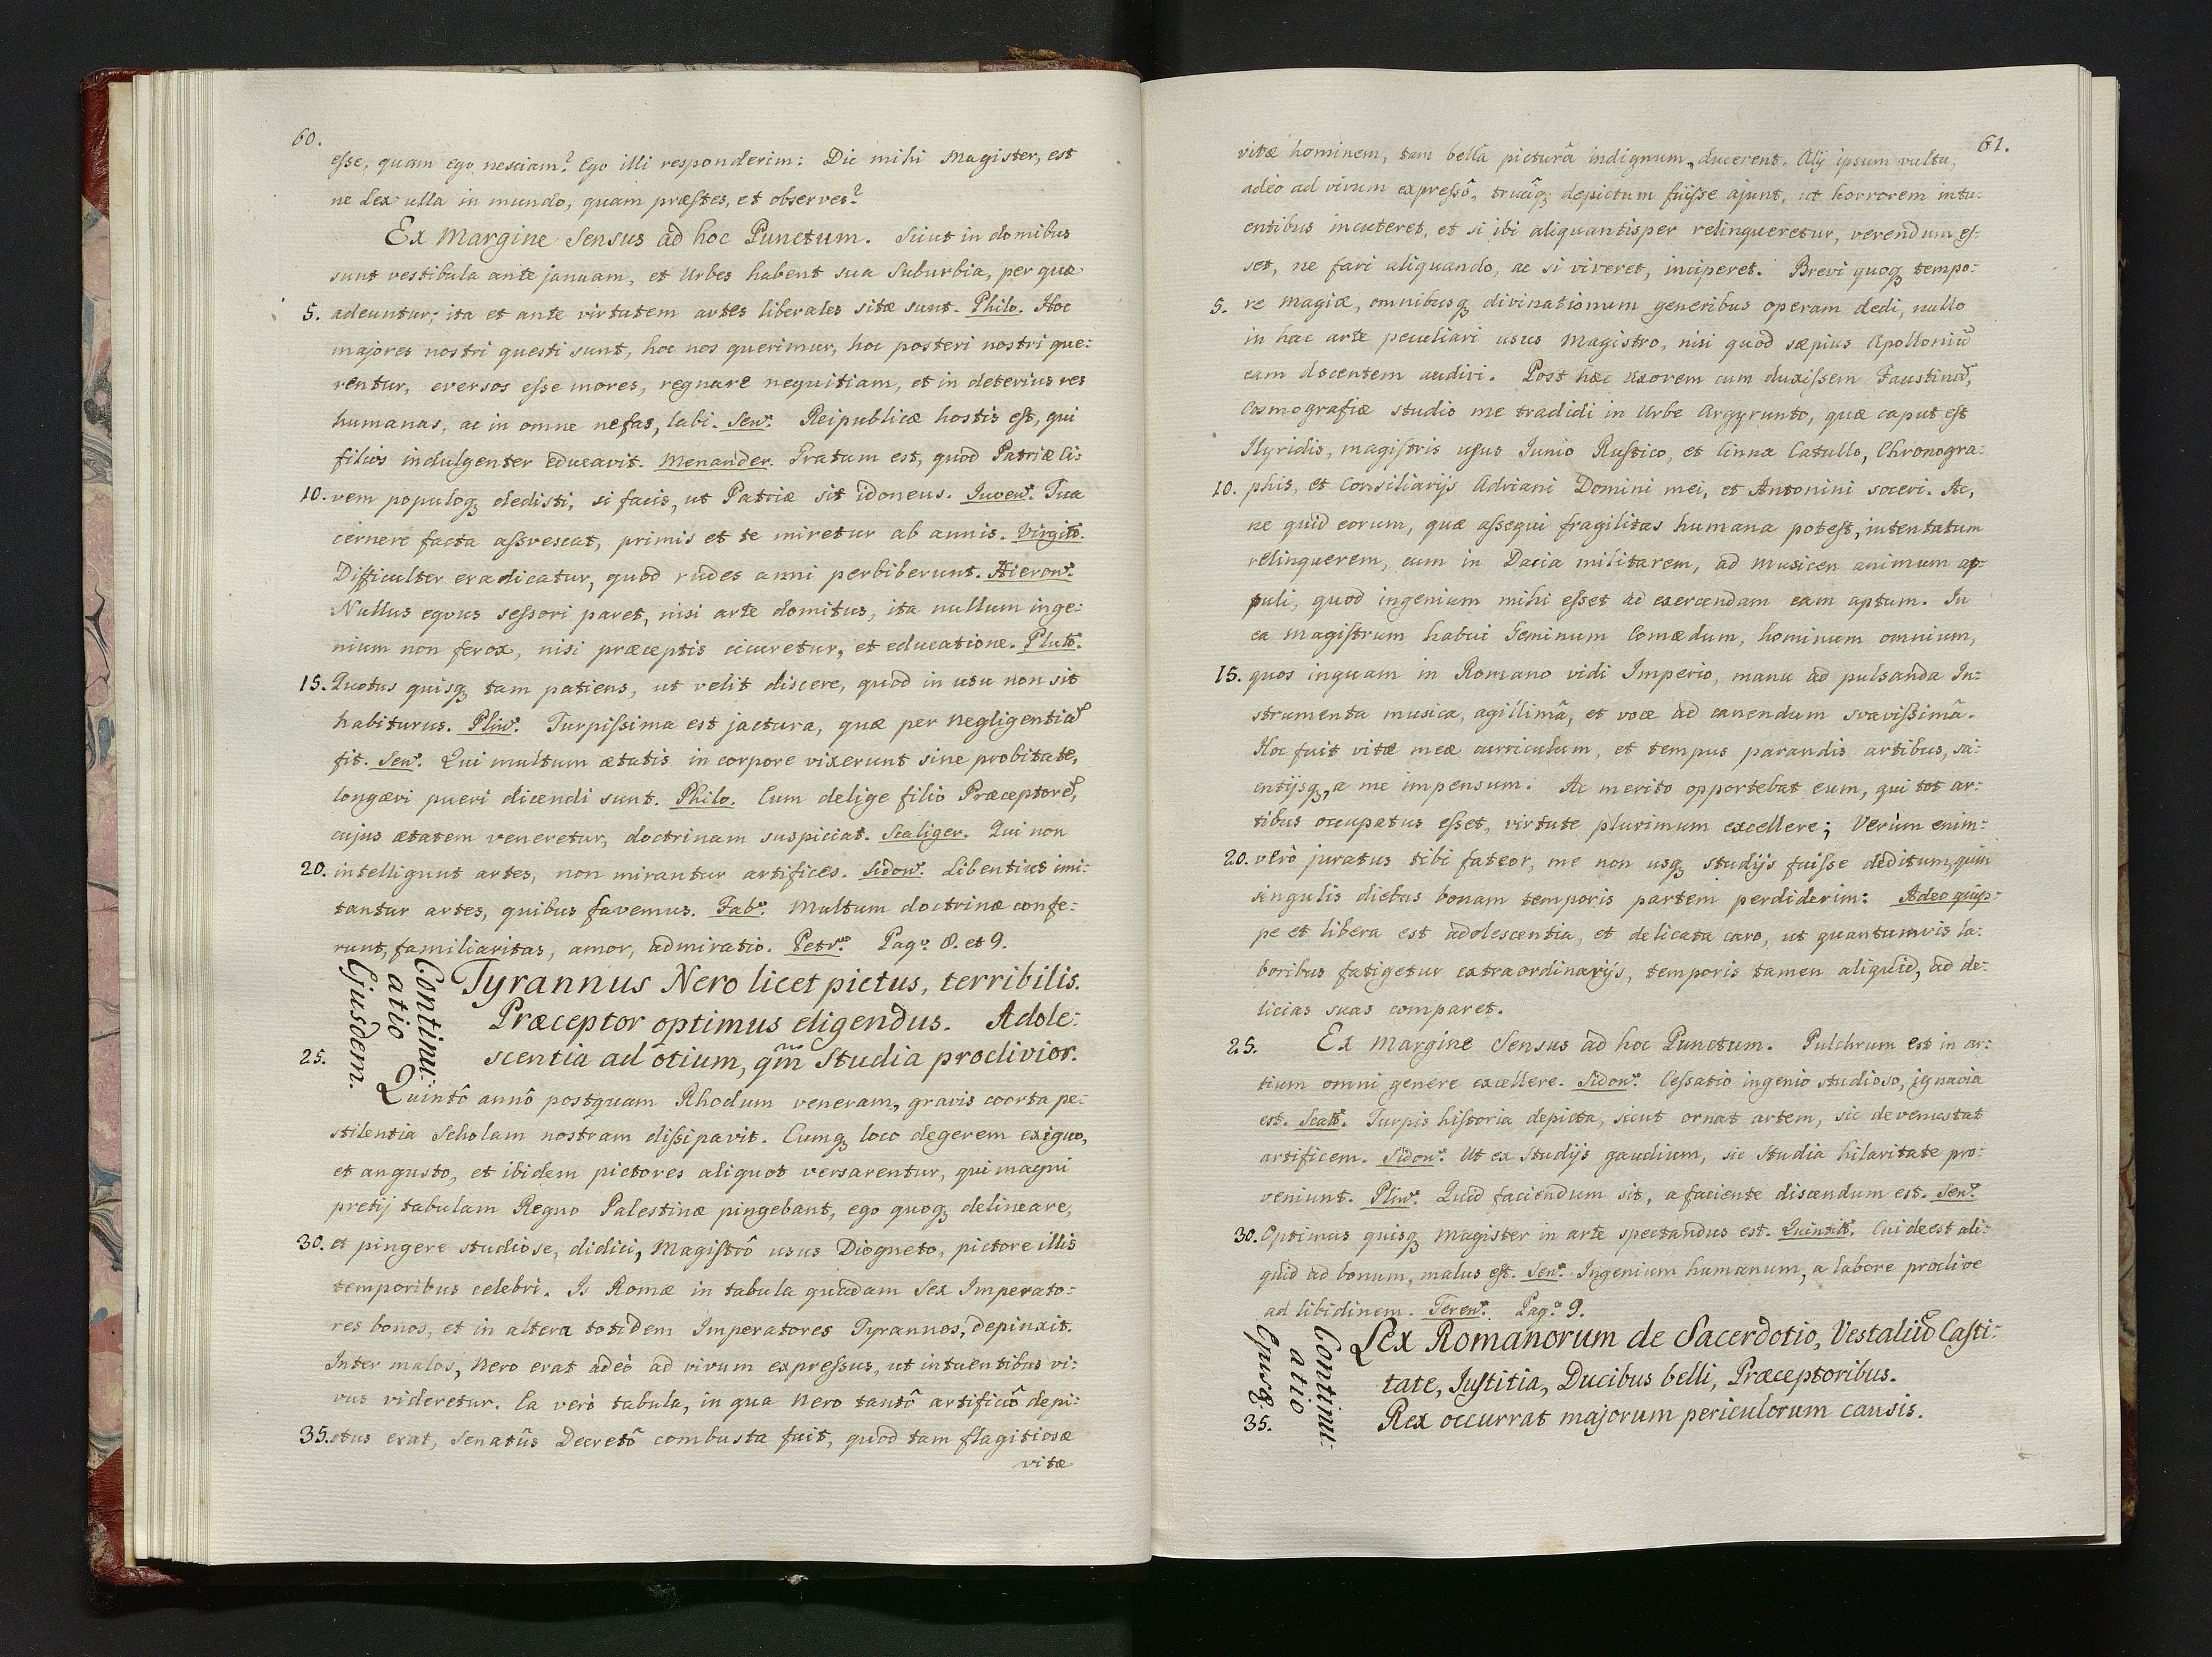 60.
esse, quam ego nesciam? Ego illi responderim: Dic mihi Magister, est
ne Lex ulla in mundo, quam præstes, et observes?
Ex Margine Sensus ad hoc Punctum. Sicut in domibus
sunt vestibula ante januam, et Urbes habent sua Suburbia, per quæ
5. adeuntur; ita et ante virtutem artes liberales sitæ sunt. Philo. Hoc
majores nostri questi sunt, hoc nos querimur, hoc posteri nostri que:
rentur, eversos esse mores, regnare nequitiam, et in deterius res
humanas, ac in omne nefas, labi. Senᵃ. Reipublicæ hostis est, qui
filios indulgenter educavit. Menander. Gratum est, quod Patriæ Ci:
10. vem populoq₃ dedisti, si facis, ut Patriæ sit idoneus. Juvenˢ. Tua
cernere facta assvescat, primis et te miretur ab annis. Virgilˢ.
Difficulter eradicatur, quod rudes anni perbiberunt. Hieronˢ.
Nullus eqvus sessori paret, nisi arte domitus, ita nullum inge:
nium non ferox, nisi præceptis cicuretur, et educatione. Plutˢ.
15. Quotus quisq₃ tam patiens, ut velit discere, quod in usu non sit
habiturus. Plinˢ. Turpissima est jactura, quæ per negligentiam̃
fit. Senᵃ. Qui multum ætatis in corpore vixerunt sine probitate,
longævi pueri dicendi sunt. Philo. Eum delige filio Præceptorem̃,
cujus ætatem veneretur, doctrinam suspiciat. Scaliger. Qui non
20. intelligunt artes, non mirantur artifices. Sidonˢ. Libentius imi:
tantur artes, quibus favemus. Fabˢ. Multum doctrinæ confe:
runt, familiaritas, amor, admiratio. Petrˢ. Pagᵒ. 8. et 9.
Continu:
atio
Ejusdem.
Tyrannus Nero licet pictus, terribilis.
Præceptor optimus eligendus. Adole:
25. scentia ad otium, qm̃ Studia proclivior.
Quintô annô postquam Rhodum veneram, gravis coorta pe:
stilentia Scholam nostram dissipavit. Cumq₃ loco degerem exiguo,
et angusto, et ibidem pictores aliquot versarentur, qui magni
pretij tabulam Regno Palestinæ pingebant, ego quoq₃ delineare,
30. et pingere studiose, didici, Magistrô usus Diogneto, pictore illis
temporibus celebri. Is Romæ in tabula quadam Sex Imperato:
res bonos, et in altera totidem Imperatores Tyrannos, depinxit.
Inter malos, Nero erat adeò ad vivum expressus, ut intuentibus vi:
vus videretur. Ea verò tabula, in qua Nero tantô artificiô depi:
35. ctus erat, Senatûs Decretô combusta fuit, quod tam flagitiosæ
vitæ
61.
vitæ hominem, tam bellâ picturâ indignum, ducerent. Alij ipsum vultu,
adeò ad vivum expressô, truciq₃ depictum fuisse ajunt, ut horrorem intu:
entibus incuteret, et si ibi aliquantisper relinqueretur, verendum es:
set, ne fari aliquando, ac si viveret, inciperet. Brevi quoq₃ tempo:
5. re Magiæ, omnibusq₃ divinationum generibus operam dedi, nullo
in hac arte peculiari usus Magistro, nisi quod sæpius Apolloniũ
eam docentem audivi. Post hæc Uxorem cum duxissem Faustinam̃,
Cosmografiæ studio me tradidi in Urbe Argyrunto, quæ caput est
Illyridis, magistris usus Junio Rustico, et Cinna Catullo, Chronogra:
10. phis, et Consiliarijs Adriani Domini mei, et Antonini soceri. Ac,
ne quid eorum, quæ assequi fragilitas humana potest, intentatum
relinquerem, cum in Dacia militarem, ad Musicen animum ap:
puli, quod ingenium mihi esset ad exercendam eam aptum. In
ea Magistrum habui Geminum Comædum, hominum omnium,
15. quos inquam in Romano vidi Imperio, manu ad pulsanda In:
strumenta musica, agillimâ, et voce ad canendum svavissimâ.
Hoc fuit vitæ meæ curriculum, et tempus parandis artibus, sci:
entijsq₃, a me impensum. Ac merito opportebat eum, qui tot ar:
tibus occupatus esset, virtute plurimum excellere; Verùm enim:
20. verò juratus tibi fateor, me non usq₃ studijs fuisse deditum, quin
singulis diebus bonam temporis partem perdiderim: Adeo quip:
pe et libera est adolescentia, et delicata caro, ut quantumvis la:
boribus fatigetur extraordinarijs, temporis tamen aliquid, ad de:
licias suas comparet.
25. Ex Margine Sensus ad hoc Punctum. Pulchrum est in ar:
tium omni genere excellere. Sidonˢ. Cessatio ingenio studioso, ignavia
est. Scalˢ. Turpis historia depicta, sicut ornat artem, sic devenustat
artificem. Sidonˢ. Ut ex Studijs gaudium, sic Studia hilaritate pro:
veniunt. Plinˢ. Quid faciendum sit, a faciente discendum est. Senᵃ.
30. Optimus quisq₃ Magister in arte spectandus est. Quintilˢ. Cui deest ali:
quid ad bonum, malus est. Senᵃ. Ingenium humanum, a labore proclive
ad libidinem. Terenˢ. Pagᵃ. 9.
Continu:
atio
Ejusd.
Lex Romanorum de Sacerdotio, Vestaliũ Casti:
tate, Justitia, Ducibus belli, Præceptoribus.
35. Rex occurrat majorum periculorum causis.